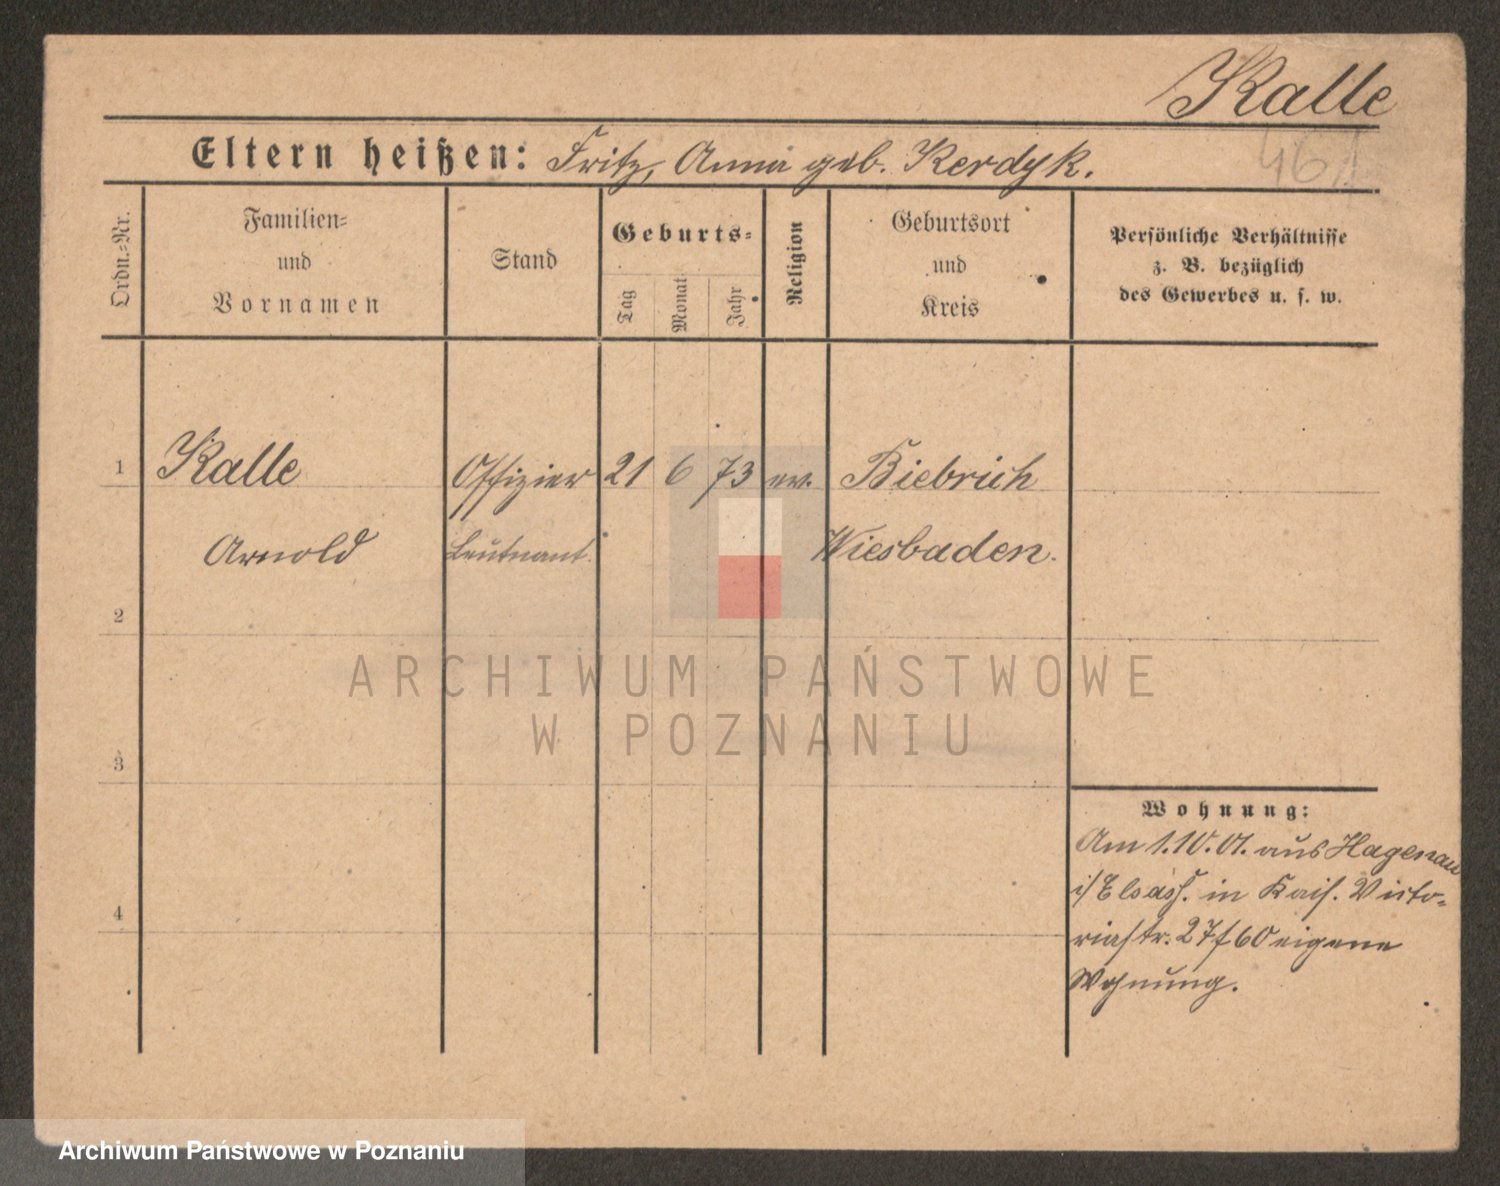 Kalle
461
Eltern heißen: Fritz, Anna geb. Kerdyk.
Ordn.-Nr.
Familien-
und
Vornamen
Stand
Geburts-
Tag
Monat
Jahr
Religion
Geburtsort
und
Kreis
Persönliche Verhältnisse
z. B. bezüglich
des Gewerbes u. s. w.
1 Kalle Offizier 21 6 73 ev. Biebrich
Arnold Leutnant. Wiesbaden.
2
ARCHIWUM PAŃSTWOWE
W POZNANIU
3
Wohnung:
Am 1.10.01. aus Hagenau
i/Elsass. in Kais. Victo-
riastr. 27 f 60 eigene
Wohnung.
4
Archiwum Państwowe w Poznaniu